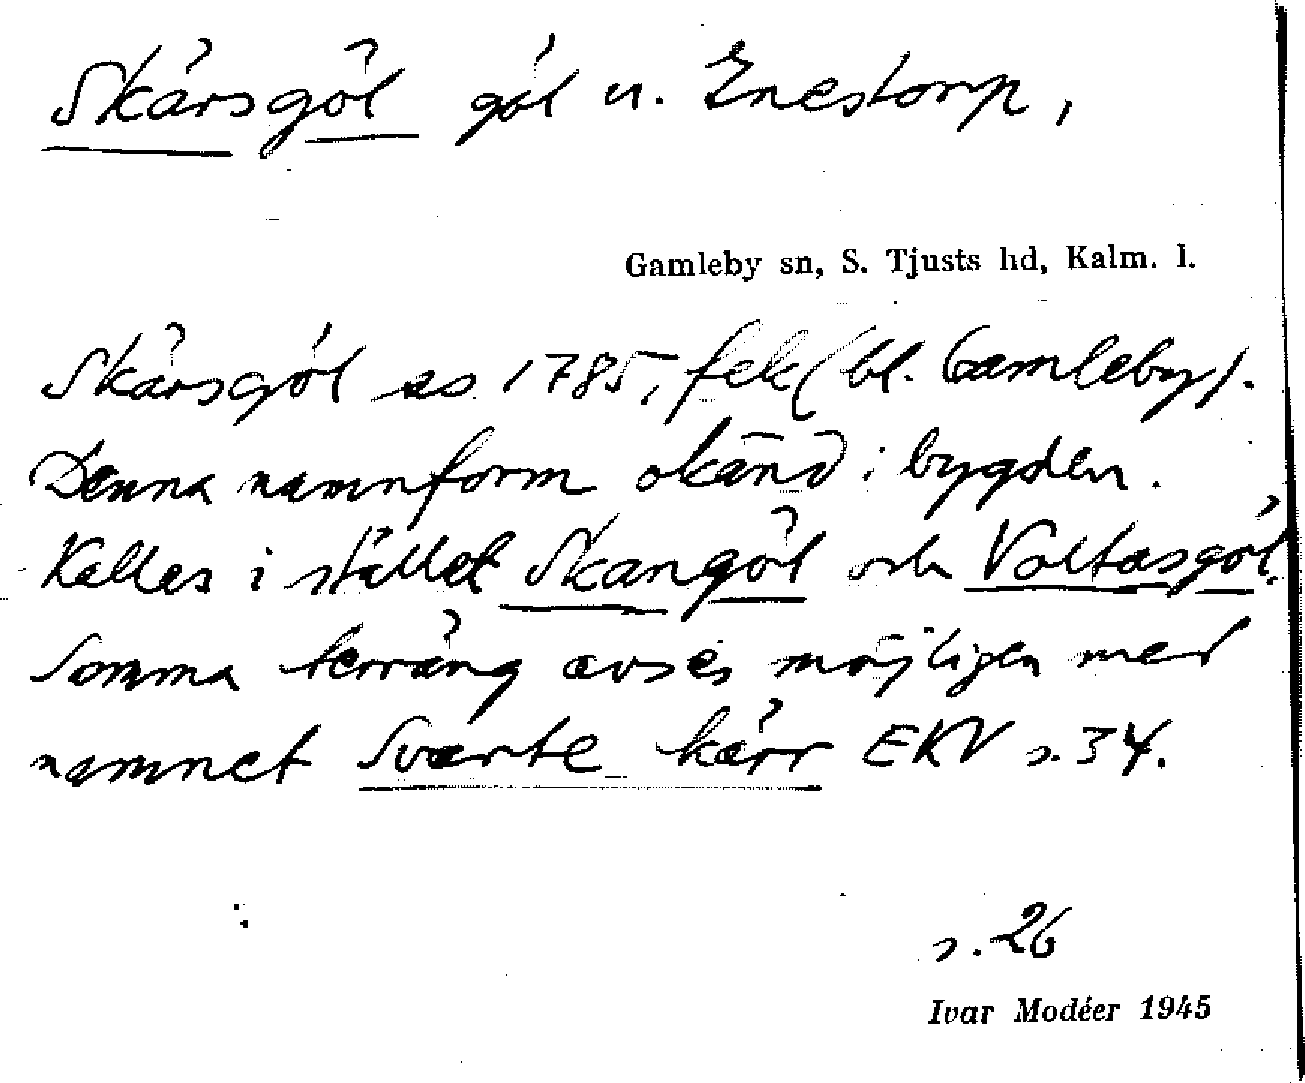 Skärsgöl göl u. Enestorp,
Gamleby sn, S. Tjusts hd, Kalm. l.
Skärsgöl as 1785, fek (bl. Gamleby).
Denna namnform okänd i bygden.
Kallas i stället Skangöl och Voltasgöl.
Samma terräng avses möjligen med
namnet Svarte kärr EKV s. 34.
s. 26
Ivar Modéer 1945